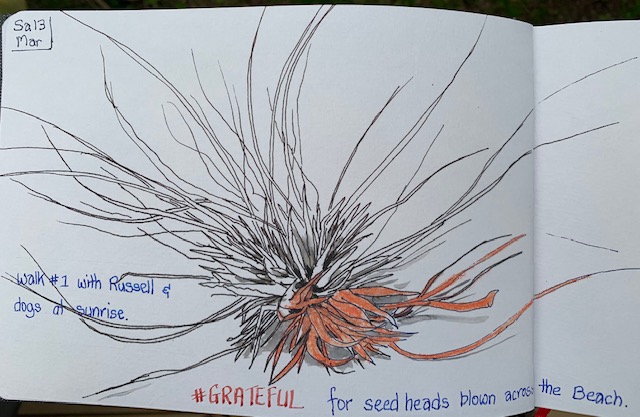 Sa13
Mar
walk #1 with Russell &
dogs at sunrise.
#GRATEFUL for seed heads blown across the Beach.